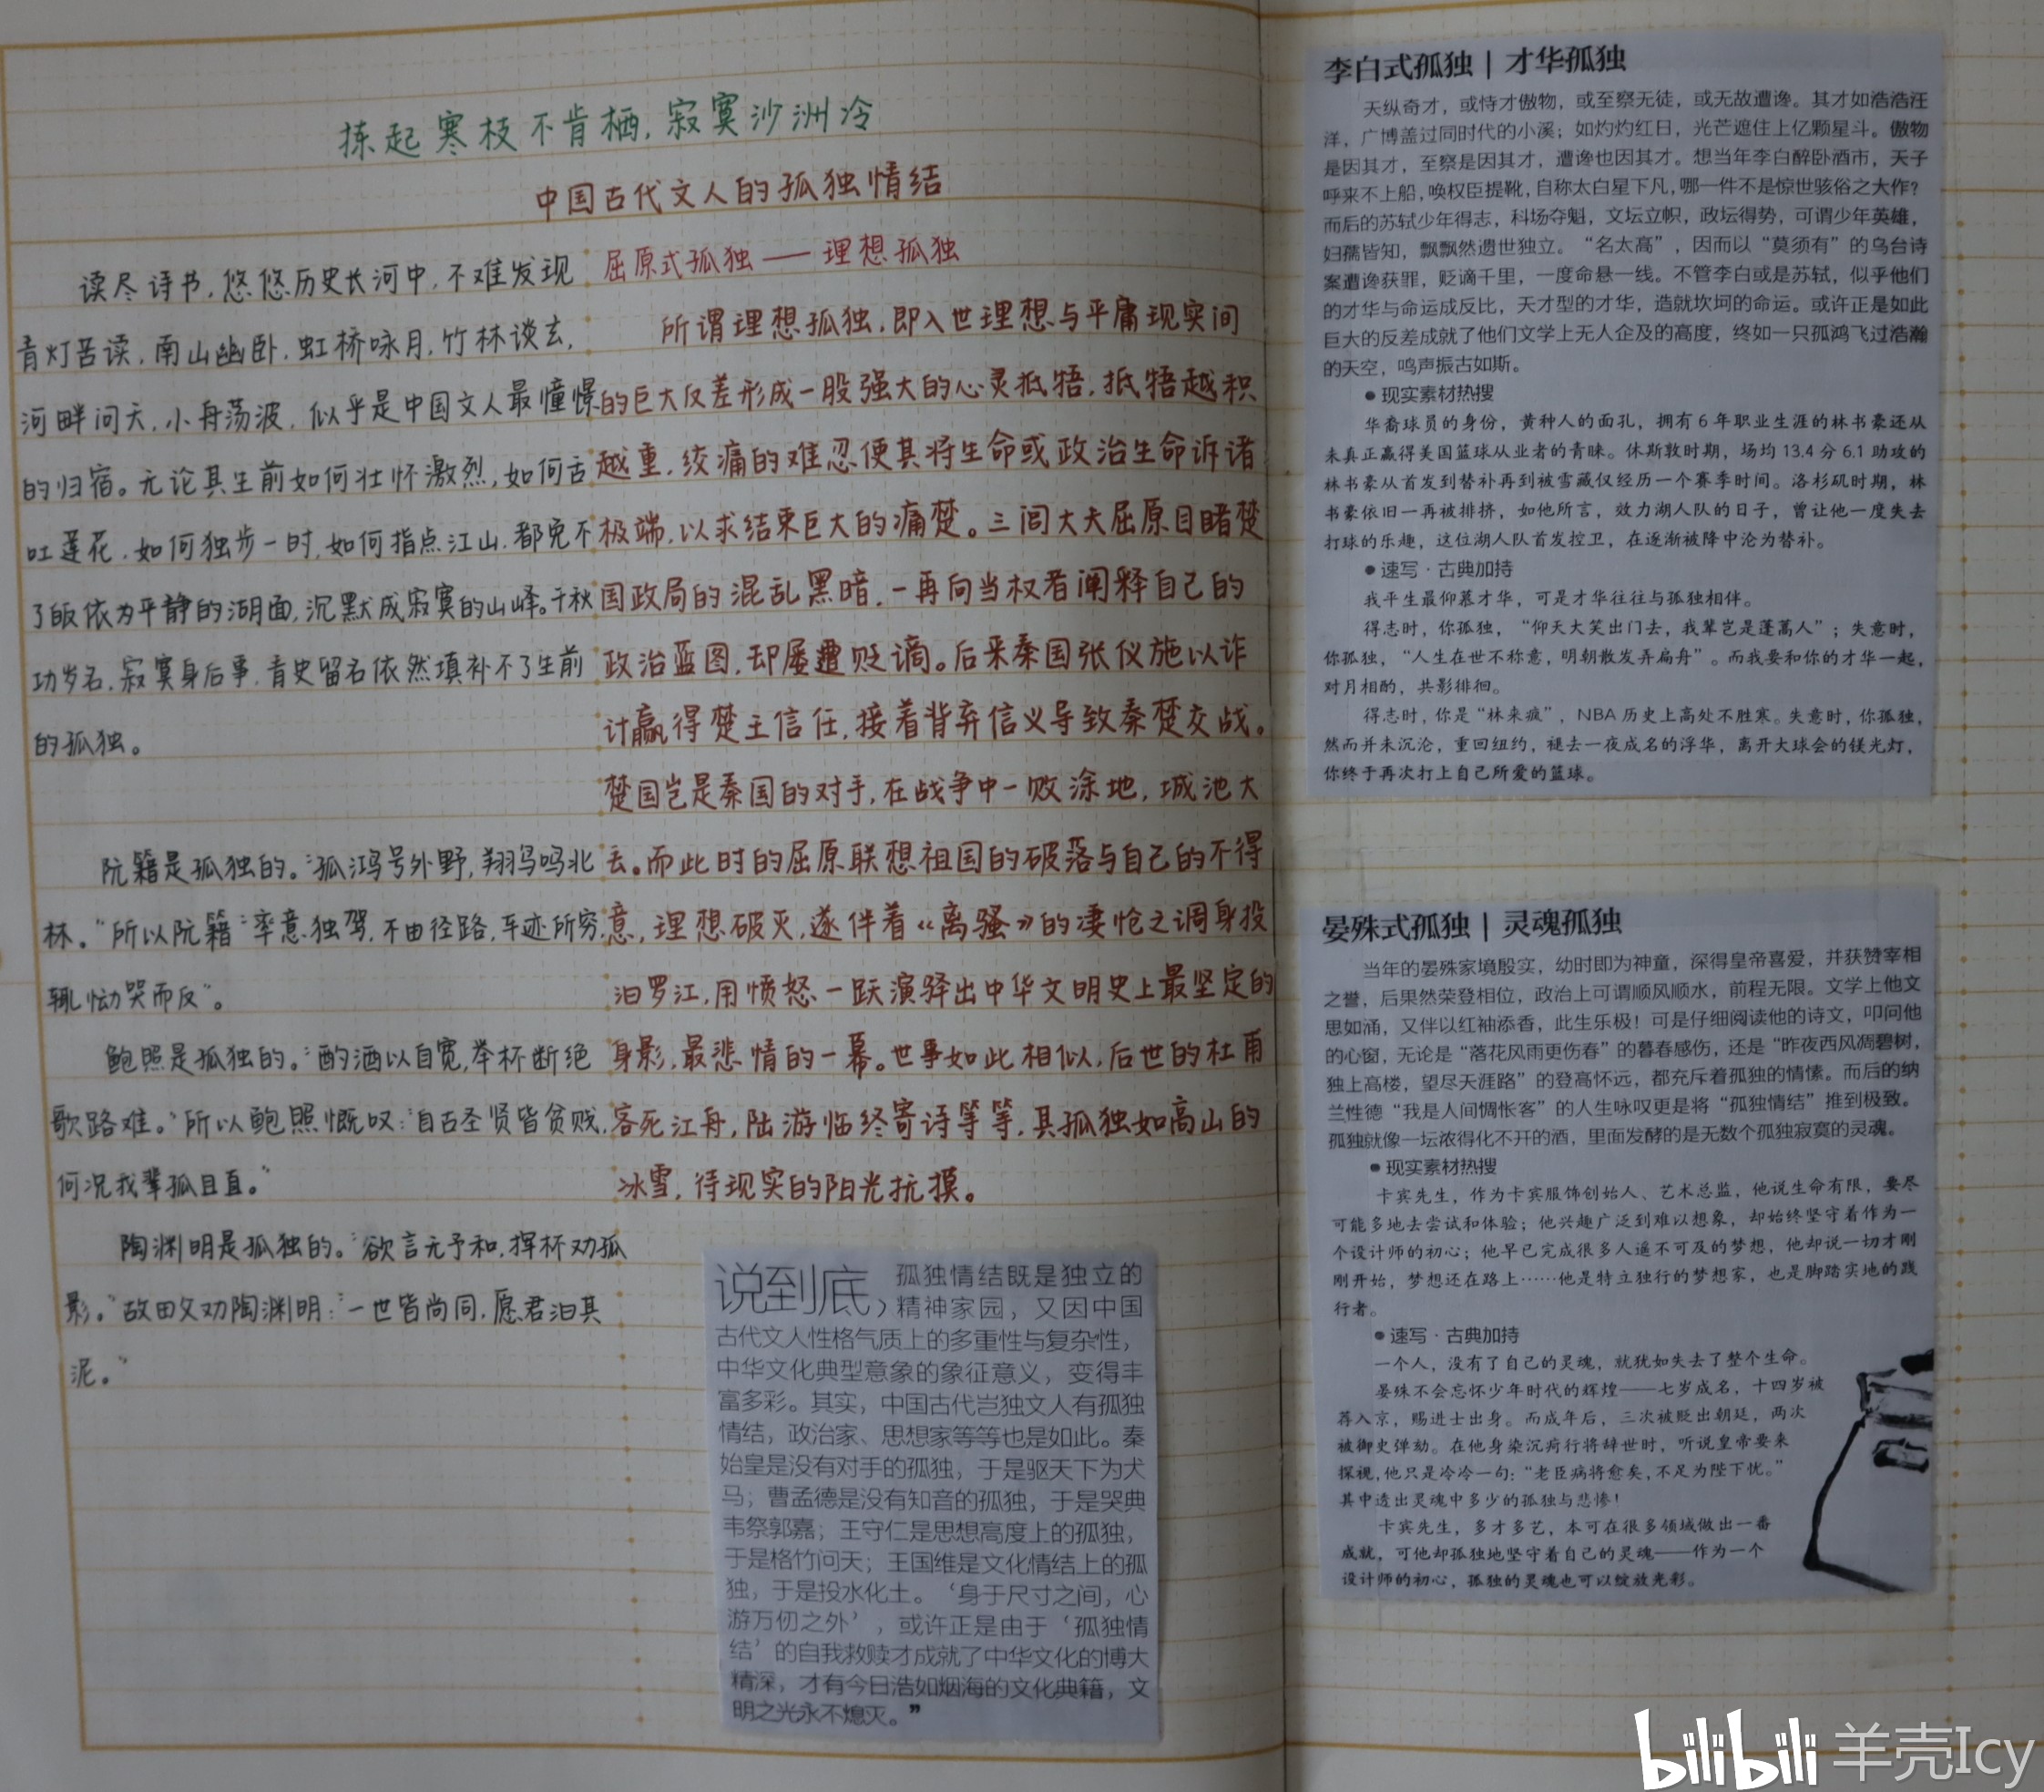 拣起寒枝不肯栖,寂寞沙洲冷
中国古代文人的孤独情结
读尽诗书,悠悠历史长河中,不难发现
青灯苦读,南山幽卧,虹桥咏月,竹林谈玄,
河畔问天,小舟荡波,似乎是中国文人最憧憬
的归宿。无论其生前如何壮怀激烈,如何舌
吐莲花,如何独步一时,如何指点江山,都免不
了皈依为平静的湖面,沉默成寂寞的山峰。千秋
功岁名,寂寞身后事,青史留名依然填补不了生前
的孤独。
阮籍是孤独的。“孤鸿号外野,翔鸟鸣北
林。”所以阮籍“率意独驾,不由径路,车迹所穷,
辄恸哭而反”。
鲍照是孤独的。“酌酒以自宽,举杯断绝
歌路难。”所以鲍照慨叹:“自古圣贤皆贫贱,
何况我辈孤且直。”
陶渊明是孤独的。“欲言无予和,挥杯劝孤
影。”故田父劝陶渊明:“一世皆尚同,愿君汩其
泥。”
屈原式孤独——理想孤独
所谓理想孤独,即入世理想与平庸现实间
的巨大反差形成一股强大的心灵抵牾,抵牾越积
越重,绞痛的难忍便其将生命或政治生命诉诸
极端,以求结束巨大的痛楚。三闾大夫屈原目睹楚
国政局的混乱黑暗,一再向当权者阐释自己的
政治蓝图,却屡遭贬谪。后来秦国张仪施以诈
计赢得楚王信任,接着背弃信义导致秦楚交战。
楚国岂是秦国的对手,在战争中一败涂地,城池大
去。而此时的屈原联想祖国的破落与自己的不得
意,理想破灭,遂伴着《离骚》的凄怆之调身投
汨罗江,用愤怒一跃演驿出中华文明史上最坚定的
身影,最悲情的一幕。世事如此相似,后世的杜甫
客死江舟,陆游临终寄诗等等,其孤独如高山的
冰雪,待现实的阳光抗摸。
说到底,孤独情结既是独立的
精神家园,又因中国
古代文人性格气质上的多重性与复杂性,
中华文化典型意象的象征意义,变得丰
富多彩。其实,中国古代岂独文人有孤独
情结,政治家、思想家等等也是如此。秦
始皇是没有对手的孤独,于是驱天下为犬
马;曹孟德是没有知音的孤独,于是哭典
韦祭郭嘉;王守仁是思想高度上的孤独,
于是格竹问天;王国维是文化情结上的孤
独,于是投水化土。‘身于尺寸之间,心
游万仞之外’,或许正是由于‘孤独情
结’的自我救赎才成就了中华文化的博大
精深,才有今日浩如烟海的文化典籍,文
明之光永不熄灭。”
李白式孤独 | 才华孤独
天纵奇才,或恃才傲物,或至察无徒,或无故遭谗。其才如浩浩汪
洋,广博盖过同时代的小溪;如灼灼红日,光芒遮住上亿颗星斗。傲物
是因其才,至察是因其才,遭谗也因其才。想当年李白醉卧酒市,天子
呼来不上船,唤权臣提靴,自称太白星下凡,哪一件不是惊世骇俗之大作?
而后的苏轼少年得志,科场夺魁,文坛立帜,政坛得势,可谓少年英雄,
妇孺皆知,飘飘然遗世独立。“名太高”,因而以“莫须有”的乌台诗
案遭谗获罪,贬谪千里,一度命悬一线。不管李白或是苏轼,似乎他们
的才华与命运成反比,天才型的才华,造就坎坷的命运。或许正是如此
巨大的反差成就了他们文学上无人企及的高度,终如一只孤鸿飞过浩瀚
的天空,鸣声振古如斯。
●现实素材热搜
华裔球员的身份,黄种人的面孔,拥有6年职业生涯的林书豪还从
未真正赢得美国篮球从业者的青睐。休斯敦时期,场均13.4分6.1助攻的
林书豪从首发到替补再到被雪藏仅经历一个赛季时间。洛杉矶时期,林
书豪依旧一再被排挤,如他所言,效力湖人队的日子,曾让他一度失去
打球的乐趣,这位湖人队首发控卫,在逐渐被降中沦为替补。
●速写·古典加持
我平生最仰慕才华,可是才华往往与孤独相伴。
得志时,你孤独,“仰天大笑出门去,我辈岂是蓬蒿人”;失意时,
你孤独,“人生在世不称意,明朝散发弄扁舟”。而我要和你的才华一起,
对月相酌,共影徘徊。
得志时,你是“林来疯”,NBA历史上高处不胜寒。失意时,你孤独,
然而并未沉沦,重回纽约,褪去一夜成名的浮华,离开大球会的镁光灯,
你终于再次打上自己所爱的篮球。
晏殊式孤独 | 灵魂孤独
当年的晏殊家境殷实,幼时即为神童,深得皇帝喜爱,并获赞宰相
之誉,后果然荣登相位,政治上可谓顺风顺水,前程无限。文学上他文
思如涌,又伴以红袖添香,此生乐极!可是仔细阅读他的诗文,叩问他
的心窗,无论是“落花风雨更伤春”的暮春感伤,还是“昨夜西风凋碧树,
独上高楼,望尽天涯路”的登高怀远,都充斥着孤独的情愫。而后的纳
兰性德“我是人间惆怅客”的人生咏叹更是将“孤独情结”推到极致。
孤独就像一坛浓得化不开的酒,里面发酵的是无数个孤独寂寞的灵魂。
●现实素材热搜
卡宾先生,作为卡宾服饰创始人、艺术总监,他说生命有限,要尽
可能多地去尝试和体验;他兴趣广泛到难以想象,却始终坚守着作为一
个设计师的初心;他早已完成很多人遥不可及的梦想,他却说一切才刚
刚开始,梦想还在路上……他是特立独行的梦想家,也是脚踏实地的践
行者。
●速写·古典加持
一个人,没有了自己的灵魂,就犹如失去了整个生命。
晏殊不会忘怀少年时代的辉煌——七岁成名,十四岁被
荐入京,赐进士出身。而成年后,三次被贬出朝廷,两次
被御史弹劾。在他身染沉疴行将辞世时,听说皇帝要来
探视,他只是冷冷一句:“老臣病将愈矣,不足为陛下忧。”
其中透出灵魂中多少的孤独与悲惨!
卡宾先生,多才多艺,本可在很多领域做出一番
成就,可他却孤独地坚守着自己的灵魂——作为一个
设计师的初心,孤独的灵魂也可以绽放光彩。
bilibili 羊壳Icy